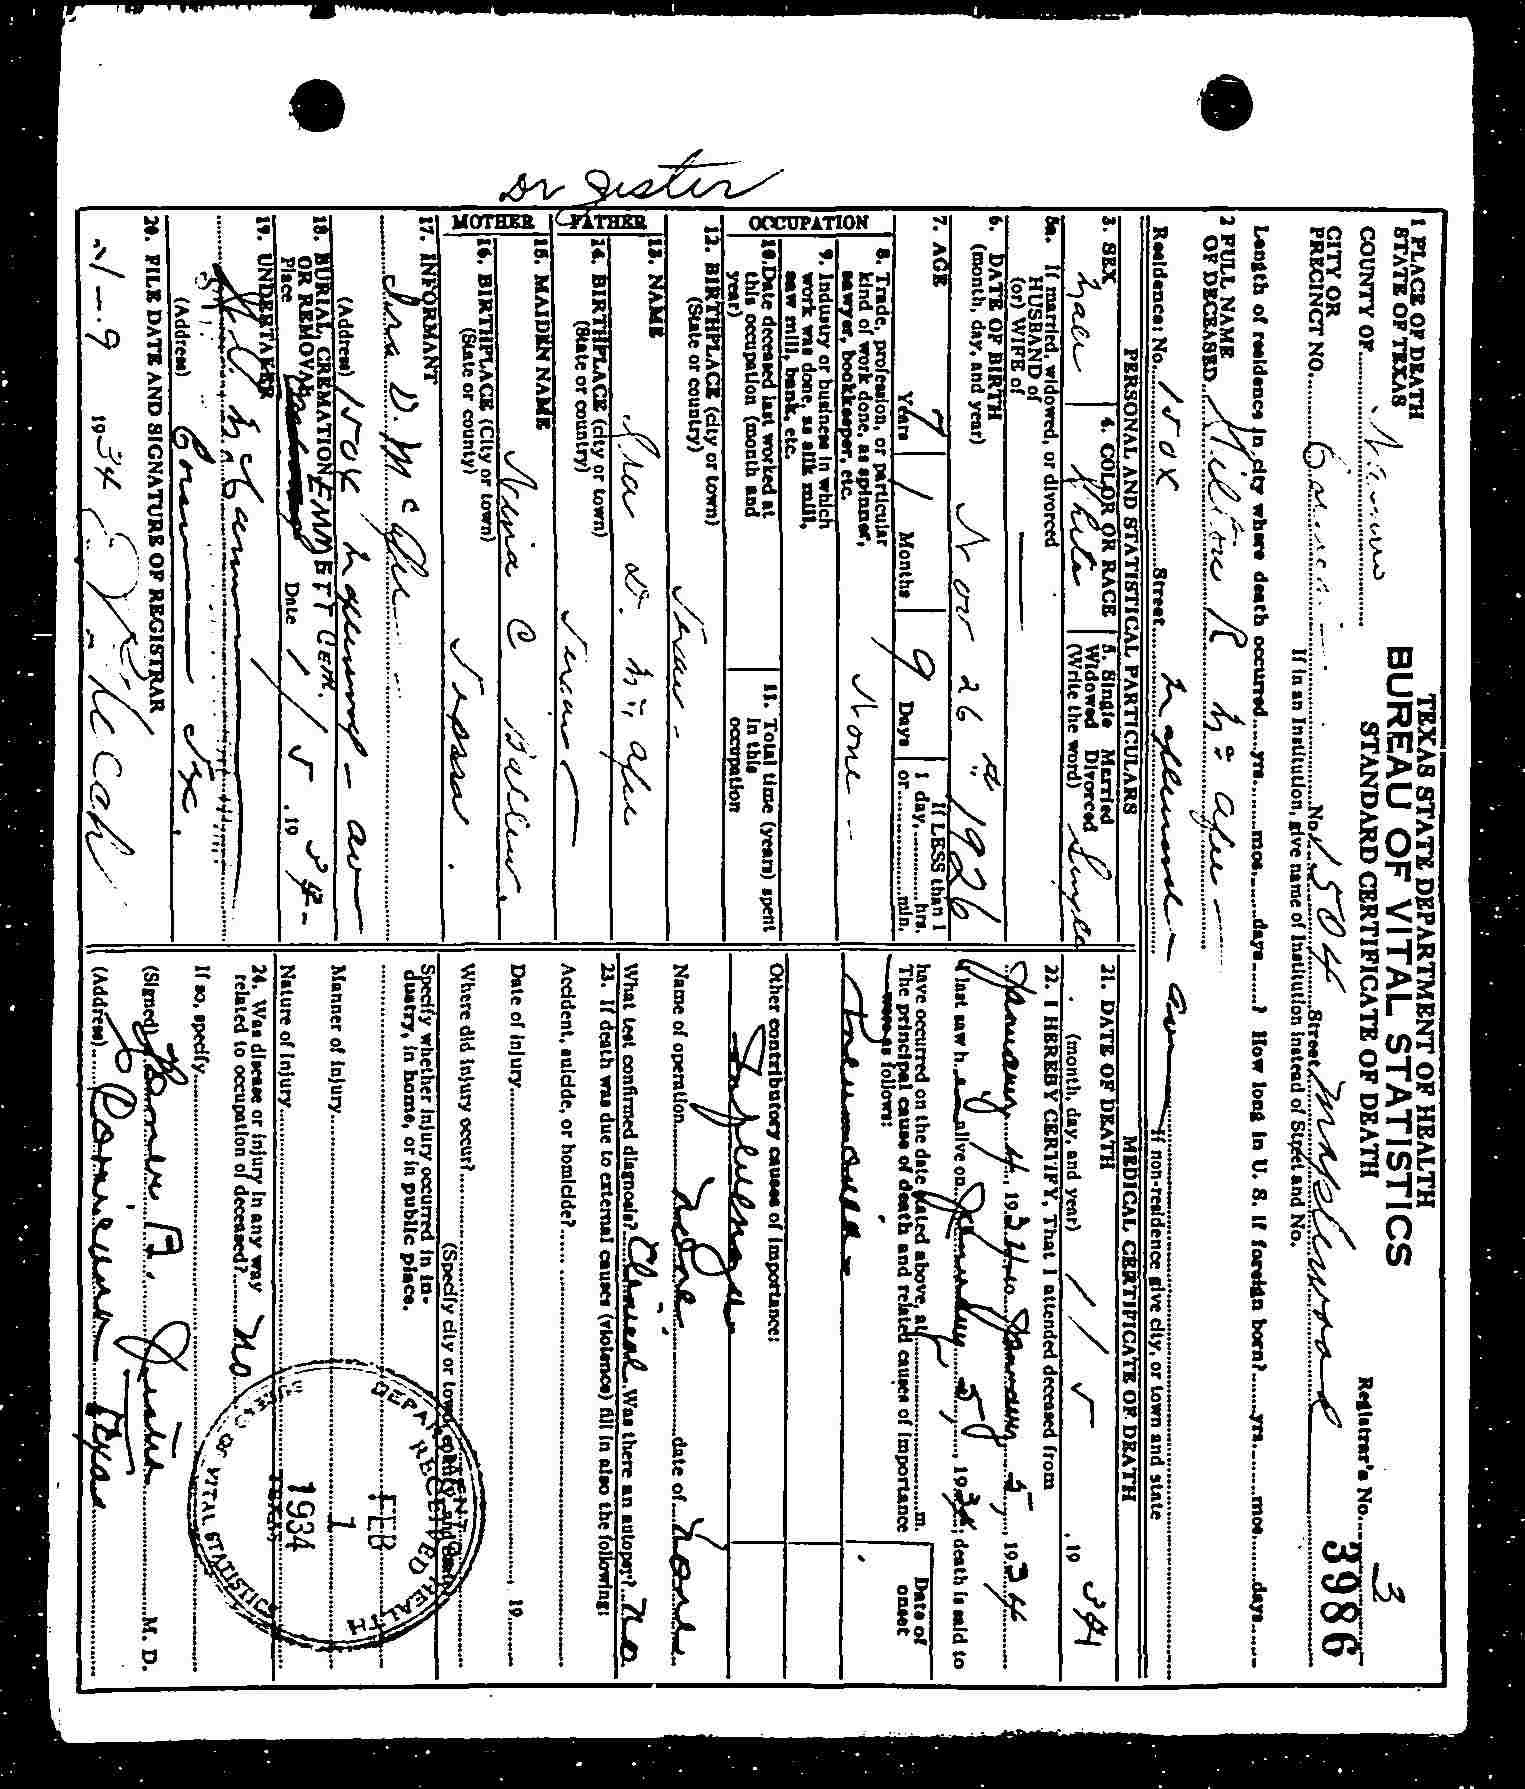 Dr Jester
TEXAS STATE DEPARTMENT OF HEALTH
BUREAU OF VITAL STATISTICS
STANDARD CERTIFICATE OF DEATH
1 PLACE OF DEATH
STATE OF TEXAS
COUNTY OF
Registrar's No. 3
3986
CITY OR
PRECINCT NO. No. 1504 Street Maplewood
If in an Institution, give name of Institution instead of Street and No.
Length of residence in city where death occurred yrs. mos. days ? How long in U. S. if foreign born? yrs. mos. days
2 FULL NAME
OF DECEASED R McAfee
Residence: No. 1504 Street If non-residence give city, or town and state
PERSONAL AND STATISTICAL PARTICULARS
3. SEX Male
4. COLOR OR RACE White
5. Single Married
Widowed Divorced
(Write the word) Single
5a. If married, widowed, or divorced
HUSBAND of
(or) WIFE of
6. DATE OF BIRTH
(month, day, and year) Nov 26th 1926
7. AGE 7 Years 1 Months 9 Days
If LESS than 1
1 day, hrs.
or min.
OCCUPATION
8. Trade, profession, or particular
kind of work done, as spinner,
sawyer, bookkeeper, etc. None
9. Industry or business in which
work was done, as silk mill,
saw mill, bank, etc.
10. Date deceased last worked at
this occupation (month and
year)
11. Total time (years) spent
in this
occupation
12. BIRTHPLACE (city or town)
(State or country) Texas
FATHER
13. NAME Ira D. McAfee
14. BIRTHPLACE (city or town)
(State or country) Texas
MOTHER
15. MAIDEN NAME C
16. BIRTHPLACE (City or town)
(State or county) Texas
17. INFORMANT Ira D. McAfee
(Address) 1504 av
18. BURIAL, CREMATION
OR REMOVAL
Place EMMETT CEM. Date 1/5, 1934
19. UNDERTAKER McCammon
(Address) Tex.
20. FILE DATE AND SIGNATURE OF REGISTRAR
1-9 1934
MEDICAL CERTIFICATE OF DEATH
21. DATE OF DEATH
(month, day, and year) 1/5, 1934
22. I HEREBY CERTIFY, That I attended deceased from
January 4 1934 to January 5, 1934
I last saw h alive on January 5, 1934; death is said to
have occurred on the date stated above, at m.
The principal cause of death and related causes of importance
were as follows:
Date of
onset
Pneumonia
Other contributory causes of importance:
Influenza
Name of operation None date of None
What test confirmed diagnosis? Clinical Was there an autopsy? No
23. If death was due to external causes (violence) fill in also the following:
Accident, suicide, or homicide?
Date of injury , 19
Where did injury occur?
(Specify city or town, county, and State)
Specify whether injury occurred in in-
dustry, in home, or in public place.
Manner of injury
Nature of injury
24. Was disease or injury in any way
related to occupation of deceased? No
If so, specify
(Signed) Homer B. Jester M. D.
(Address) Corsicana Texas
DEPARTMENT HEALTH
RECEIVED
FEB
1
1934
TEXAS
VITAL STATISTICS